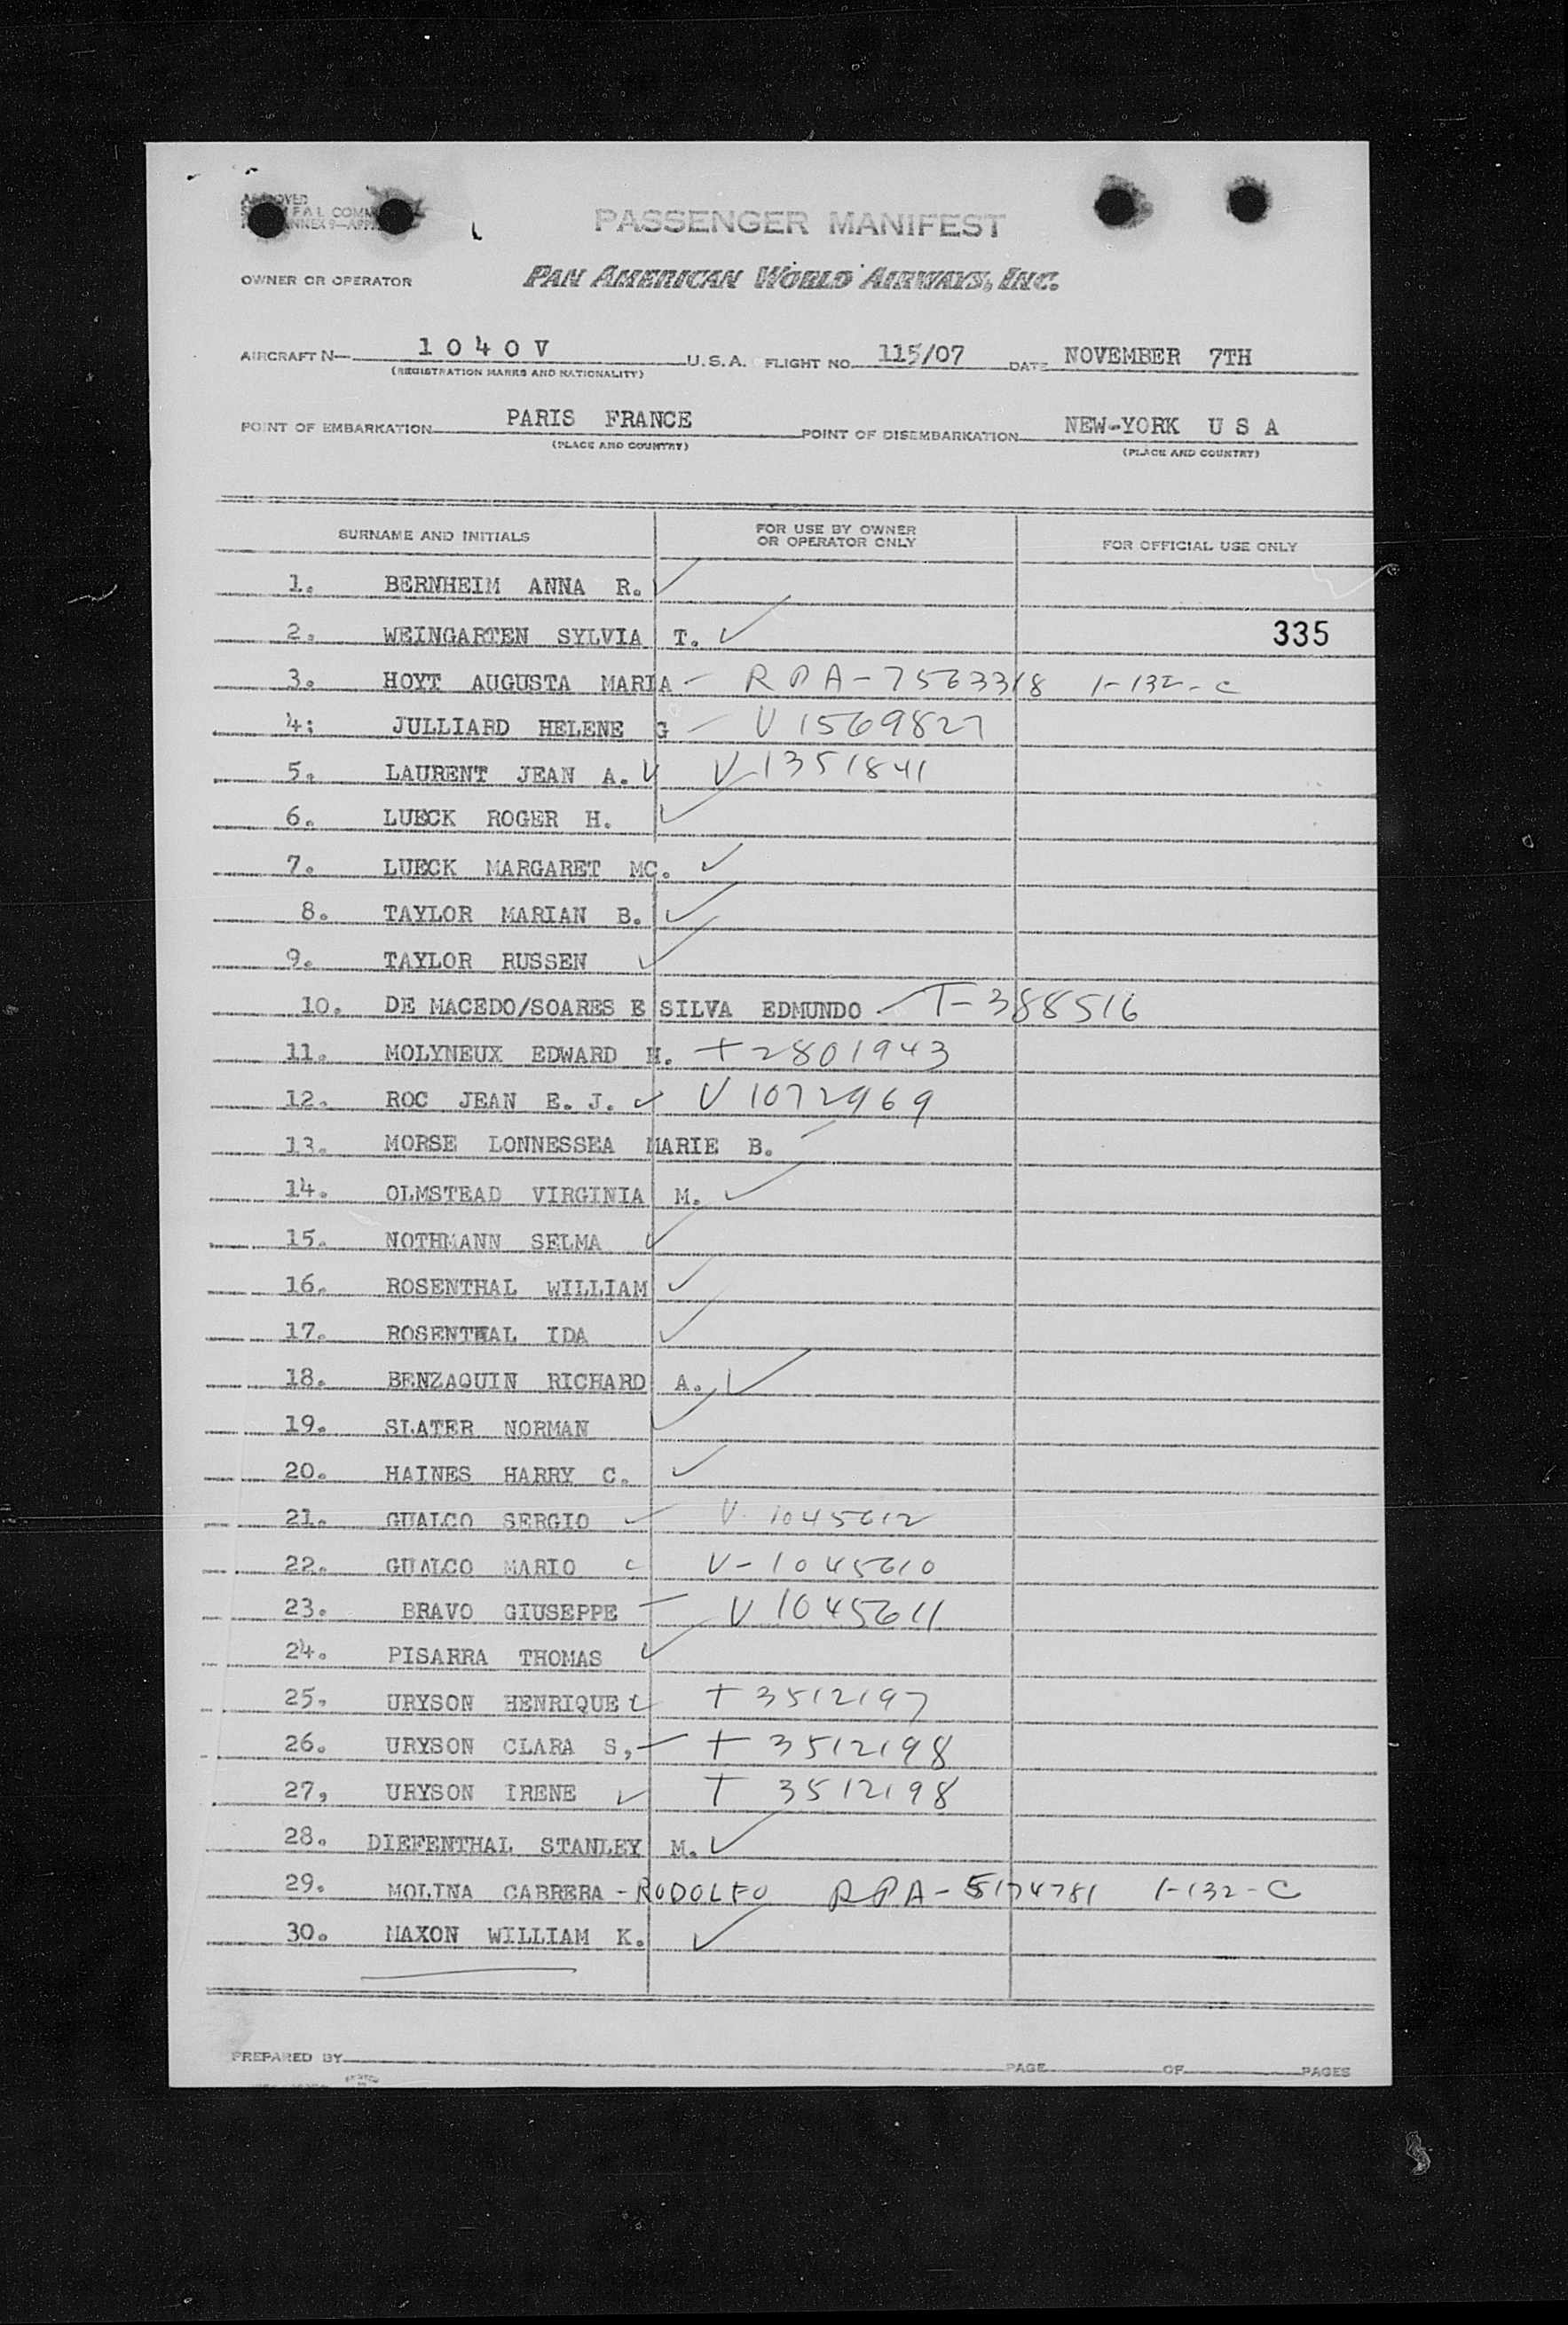 PASSENGER MANIFEST
OWNER OR OPERATOR PAN AMERICAN WORLD AIRWAYS, INC.
AIRCRAFT N— 1040V U.S.A. FLIGHT NO. 115/07 DATE NOVEMBER 7TH
(REGISTRATION MARKS AND NATIONALITY)
POINT OF EMBARKATION PARIS FRANCE POINT OF DISEMBARKATION NEW-YORK U S A
(PLACE AND COUNTRY) (PLACE AND COUNTRY)
SURNAME AND INITIALS FOR USE BY OWNER OR OPERATOR ONLY FOR OFFICIAL USE ONLY
1. BERNHEIM ANNA R.
2. WEINGARTEN SYLVIA T. 335
3. HOYT AUGUSTA MARIA RPA-7563318 1-132-C
4: JULLIARD HELENE G V 1569827
5. LAURENT JEAN A. V-1351841
6. LUECK ROGER H.
7. LUECK MARGARET MC.
8. TAYLOR MARIAN B.
9. TAYLOR RUSSEN
10. DE MACEDO/SOARES E SILVA EDMUNDO T-388516
11. MOLYNEUX EDWARD H. T 2801943
12. ROC JEAN E. J. V 1072969
13. MORSE LONNESSEA MARIE B.
14. OLMSTEAD VIRGINIA M.
15. NOTHMANN SELMA
16. ROSENTHAL WILLIAM
17. ROSENTHAL IDA
18. BENZAQUIN RICHARD A.
19. SLATER NORMAN
20. HAINES HARRY C.
21. GUALCO SERGIO V-1045612
22. GUALCO MARIO V-1045610
23. BRAVO GIUSEPPE V 1045611
24. PISARRA THOMAS
25. URYSON HENRIQUE T 3512197
26. URYSON CLARA S, T 3512198
27, URYSON IRENE T 3512198
28. DIEFENTHAL STANLEY M.
29. MOLINA CABRERA - RODOLFO RPA-5174781 1-132-C
30. MAXON WILLIAM K.
PREPARED BY PAGE OF PAGES